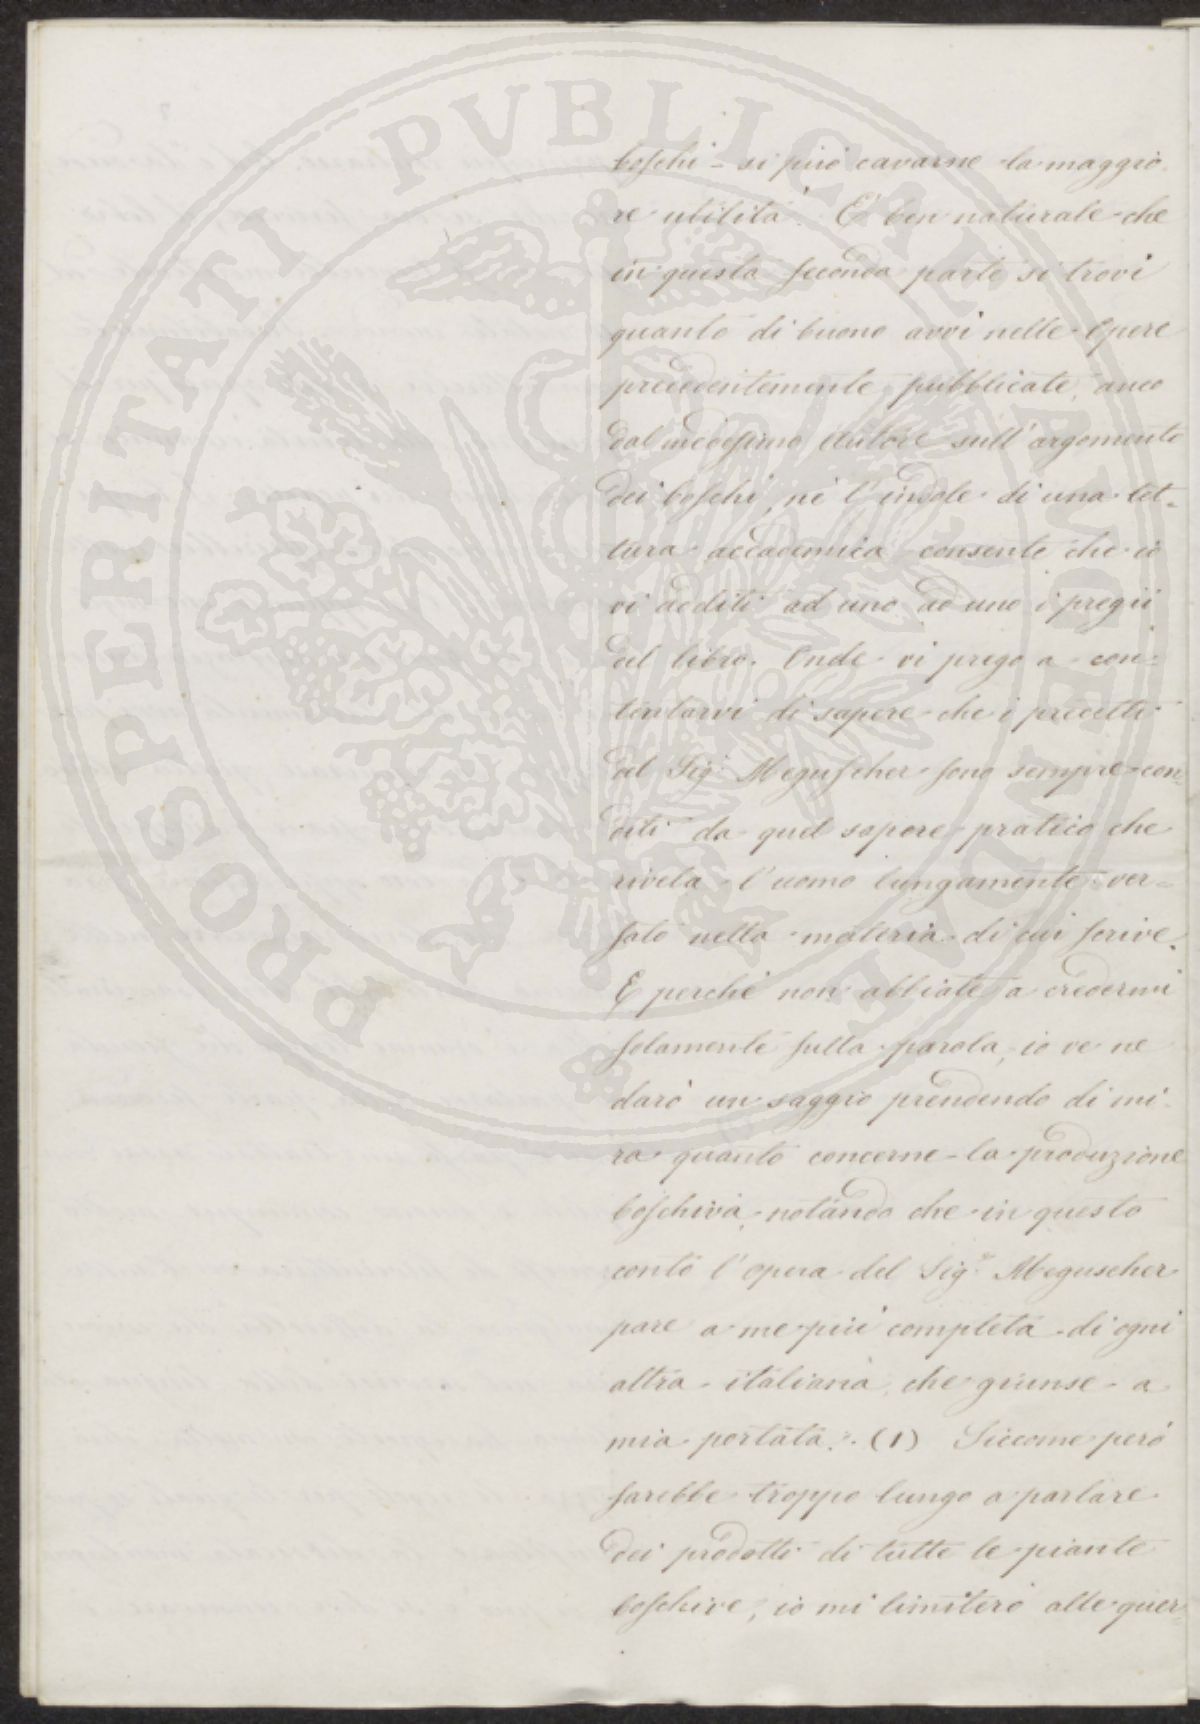 PROSPERITATI PUBLICAE AUGENDAE
boschi - si può cavarne la maggio-
re utilità. E' ben naturale che
in questa seconda parte si trovi
quanto di buono avvi nelle Opere
precedentemente pubblicate, anco
dal medesimo autore sull'argomento
dei boschi, nè l'indole di una let-
tura accademica consente che io
vi additi ad uno ad uno i pregii
del libro. Onde vi prego a con-
tentarvi di sapere che i precetti
del Sig.r Meguscher sono sempre con-
diti da quel sapore pratico che
rivela l'uomo lungamente ver-
sato nella materia di cui scrive.
E perchè non abbiate a credermi
solamente sulla parola, io ve ne
darò un saggio prendendo di mi-
ra quanto concerne la produzione
boschiva, notando che in questo
conto l'opera del Sig.r Meguscher
pare a me più completa di ogni
altra italiana, che giunse a
mia portata. (1) Siccome però
sarebbe troppo lungo a parlare
dei prodotti di tutte le piante
boschive, io mi limiterò alle quer-